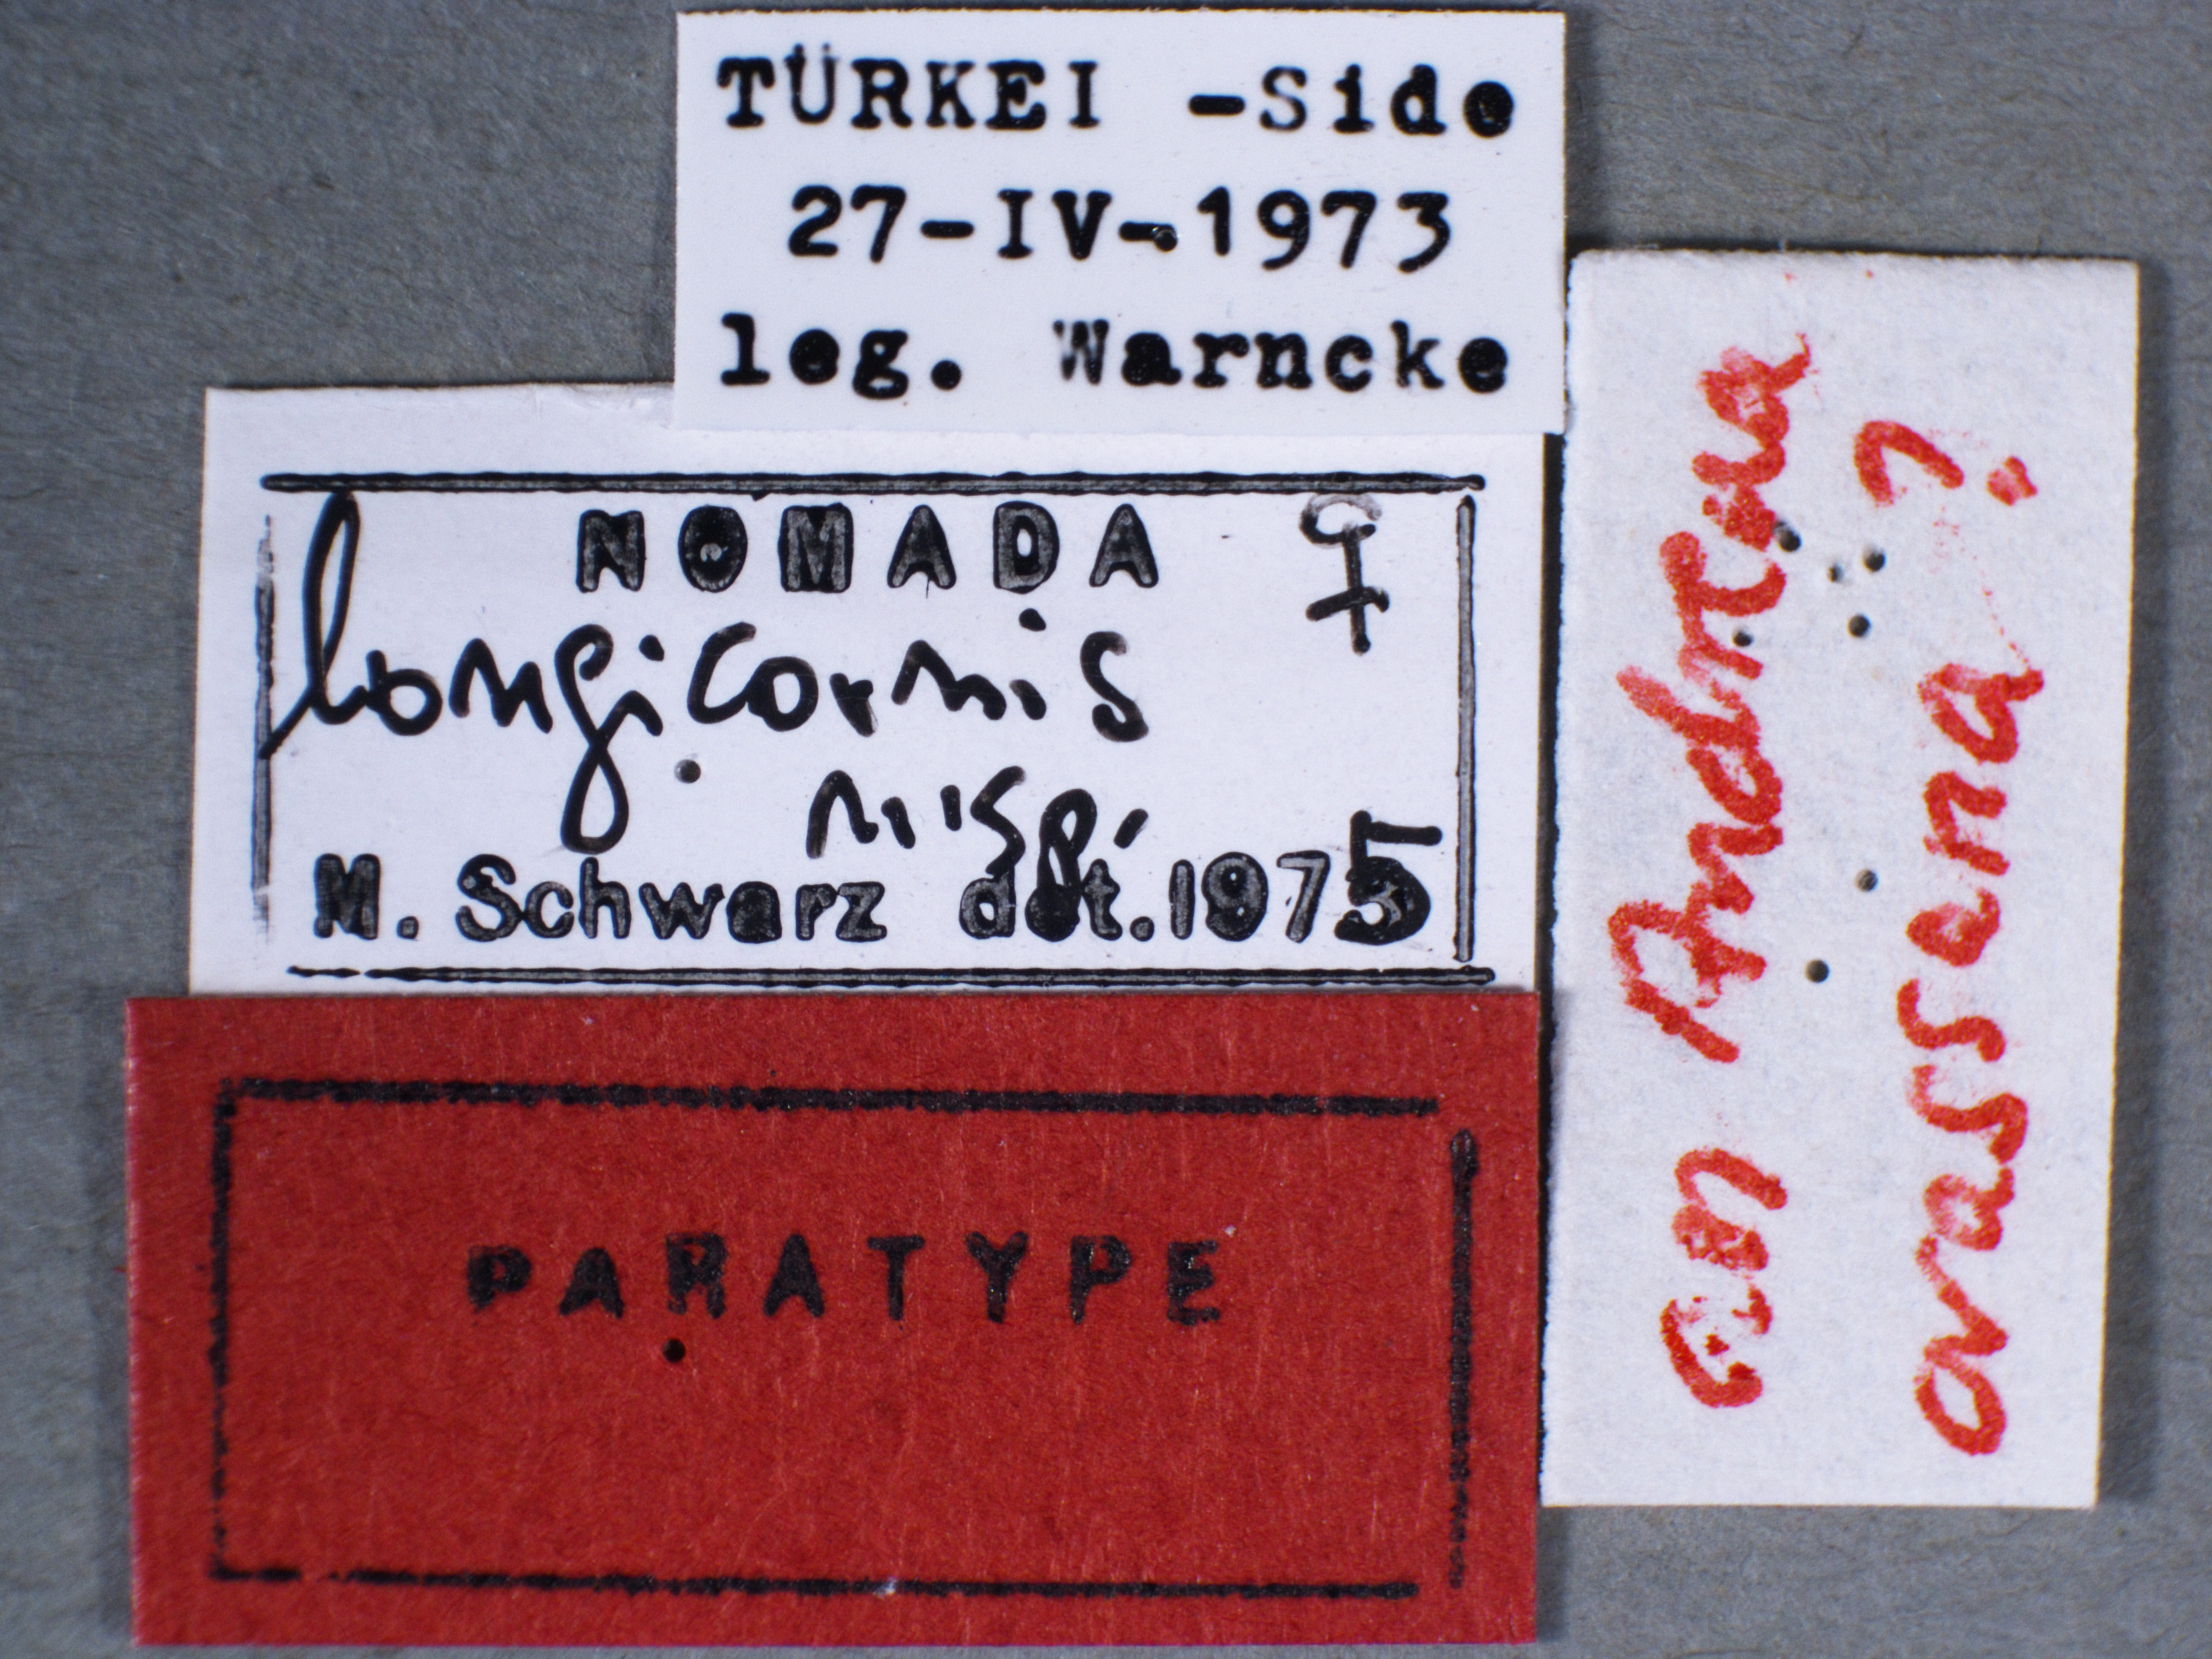 TÜRKEI -Side
27-IV-1973
leg. Warncke
NOMADA ♀
longicornis
n.sp.
M. Schwarz det. 1975
PARATYPE
an Andrena
crassana?